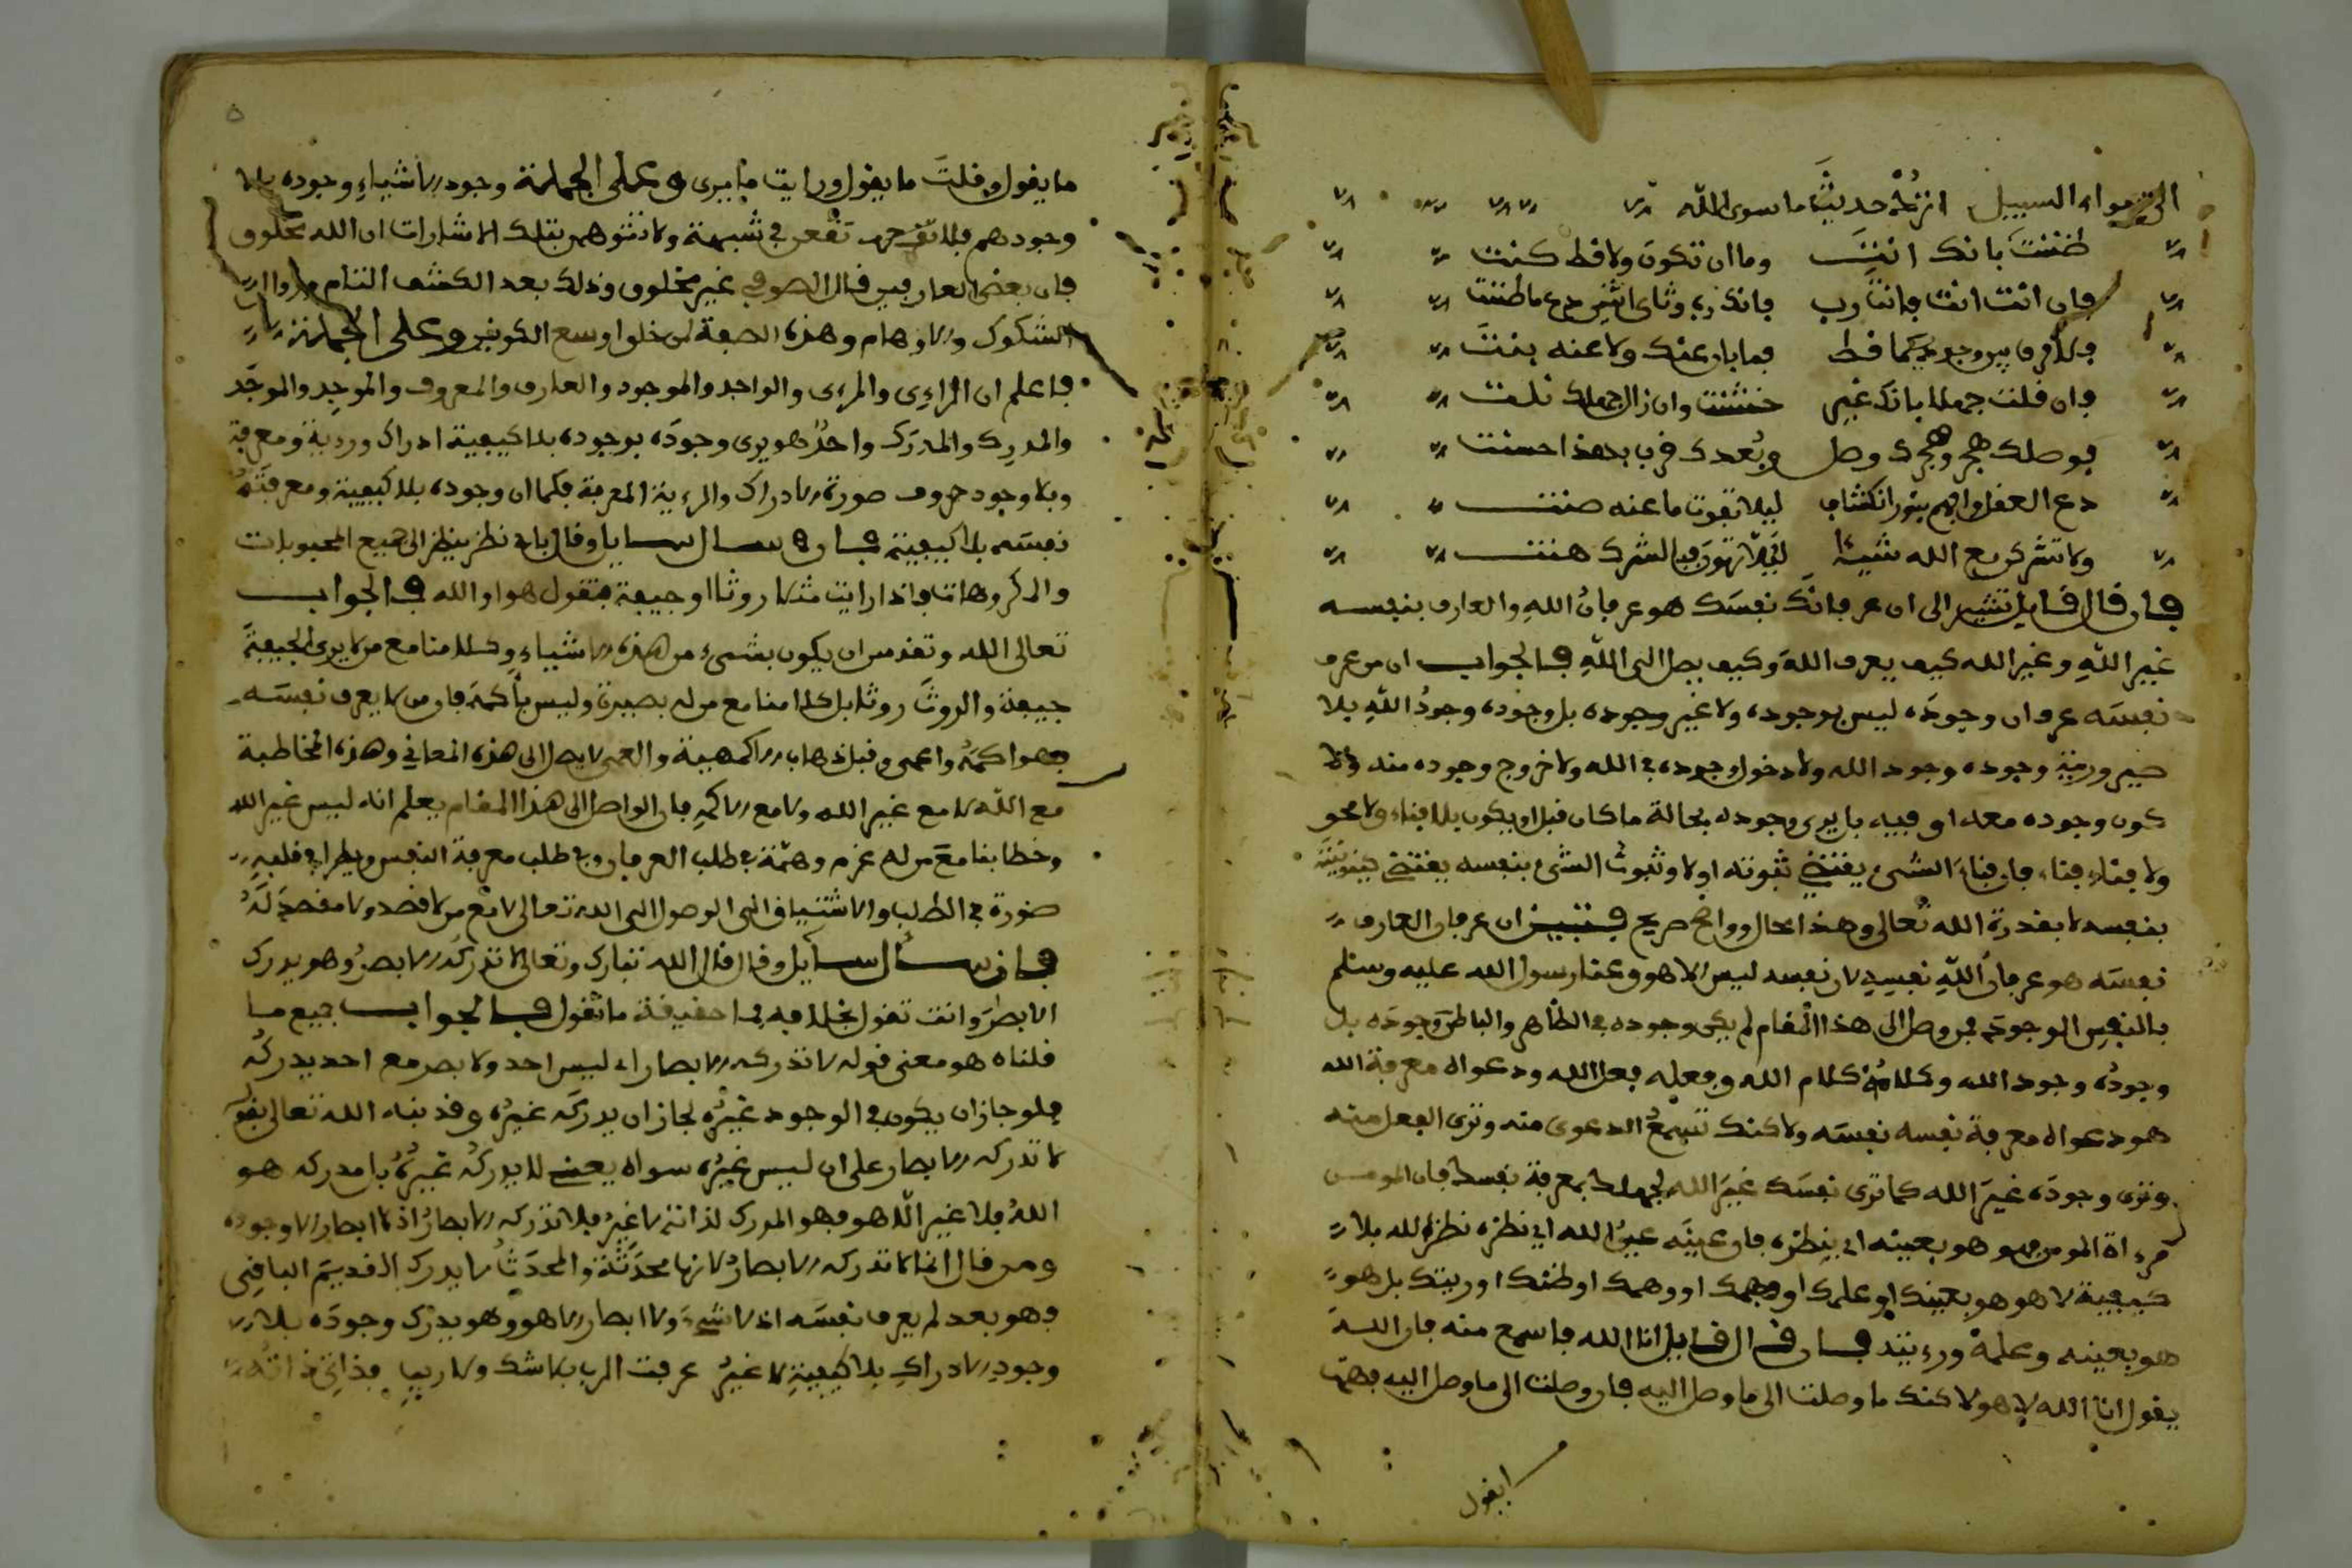 الى سواء السبيل اثرك حديث ما سوى الله
ظننت بانك انت وما ان تكون ولا قط كنت
فان انت انت فانت رب فانك وثاني اثنين دع ما ظننت
فلا فرق بين وجوديكما قط فما بان عنك ولا عنه بنت
فان قلت جهلا بانك غير خشنت وان زال جهلك نلت
فوصلك هجر وهجرك وصل وبعدك قرب بهذا حسنت
دع العقل وافهم بنور انكشاف ليلا تفوت ما عنه صنت
ولا تشرك مع الله شيئا ليلا تهون فبالشرك هنت
فان قال قايل تشير الى ان عرفانك نفسك هو عرفان الله والعارف بنفسه
غير الله وغير الله كيف يعرف الله وكيف يصل الى الله فالجواب ان من عرف
نفسه عرف ان وجوده ليس بوجوده ولا غير وجوده بل وجوده وجود الله بلا
صيرورة وجوده وجود الله ولا دخول وجوده في الله ولا خروج وجوده منه ولا
كون وجوده معه او فيه بل يرى وجوده بحالة ما كان قبل ان يكون بلا فناء ولا محو
ولا فناء فناء فان فناء الشيء يقتضي ثبوته اولا وثبوت الشيء بنفسه يقتضي كينونته
بنفسه لا بقدرة الله تعالى وهذا محال وواضح صريح فتبين ان عرفان العارف
نفسه هو عرفان الله نفسه لان نفسه ليس الا هو وعنى رسول الله عليه وسلم
بالنفس الوجود فمن وصل الى هذا المقام لم يكن وجوده في الظاهر والباطن وجوده بل
وجوده وجود الله وكلامه كلام الله وفعله فعل الله ودعواه معرفة الله
هو دعواه معرفة نفسه نفسه ولاكنك تسمع الدعوى منه وترى الفعل منه
وترى وجوده غير الله كما ترى نفسك غير الله لجهلك بمعرفة نفسك فان المومن
مرءاة المومن فهو هو بعينه اي بنظره فان عينه عين الله اي نظره نظر الله بلا
كيفية لا هو هو بعينك او علمك او فهمك او وهمك او ظنك او رويتك بل هو
هو بعينه وعلمه ورءيته فان قال قايل انا الله فاسمع منه فان الله
يقول انا الله لا هو ولاكنك ما وصلت الى ما وصل اليه فان وصلت الى ما وصل اليه فهمت
ما يقول وقلت ما يقول ورايت ما يرى وعلى الجملة وجود الاشياء وجوده بلا
وجودهم فلا تقعن في شبهة ولا تتوهمن بتلك الاشارات ان الله مخلوق
فان بعض العارفين قال الصوفي غير مخلوق وذلك بعد الكشف التام وزوال
الشكوك والاوهام وهذه اللقمة لمن خلق اوسع الكونين وعلى الجملة
فاعلم ان الراءي والمرءي والواجد والموجود والعارف والمعروف والموجد والموجد
والمدرك والمدرك واحد هو يرى وجوده بوجوده بلا كيفية ادراك وروية ومعرفة
وبلا وجود حروف صورة الادراك والرءية والمعرفة فكما ان وجوده بلا كيفية ومعرفته
نفسه بلا كيفية فان سال سايل وقال باي نظر ينظر الى جميع المحبوبات
والمكروهات فاذا رايت مثلا روثا او جيفة فتقول هو او الله فالجواب
تعالى الله وتقدس ان يكون بشيء من هذه الاشياء وكلامنا مع من لا يرى الجيفة
جيفة والروث روثا بل كلامنا مع من له بصيرة وليس باكمه فان من لا يعرف نفسه
فهو اكمه واعمى وقبل ذهاب الاكمهية والعمى لا يصل الى هذه المعاني وهذه المخاطبة
مع الله لا مع غير الله ولا مع الاكمه فان الواصل الى هذا المقام يعلم انه ليس غير الله
وخطابنا مع من له عزم وهمة في طلب العرفان وفي طلب معرفة النفس ويطرا في قلبه
صورة في الطلب والاشتياق الى الوصول الى الله تعالى لا مع من لا قصد ولا مقصد له
فان سال سايل وقال قال الله تبارك وتعالى لا تدركه الابصار وهو يدرك
الابصار وانت تقول بخلافه فما حقيقة ما تقول فالجواب جميع ما
قلناه هو معنى قوله لا تدركه الابصار اي ليس احد ولا بصر مع احد يدركه
فلو جاز ان يكون في الوجود غيره لجاز ان يدركه غيره وقد نبه الله تعالى بقوله
لا تدركه الابصار على ان ليس غيره سواه يعني لا يدركه غيره بل مدركه هو
الله فلا غير الا هو فهو المدرك لذاته لا غير فلا تدركه الابصار اذ لا ابصار الا وجوده
ومن قال انما لا تدركه الابصار لانها محدثة والمحدث لا يدرك القديم الباقي
فهو بعد لم يعرف نفسه اذ لا شيء ولا ابصار الا هو وهو يدرك وجوده بلا
وجود الادراك بلا كيفية لا غير عرفت الرب بلا شك ولا ريب فذاتي ذاته
ايقول